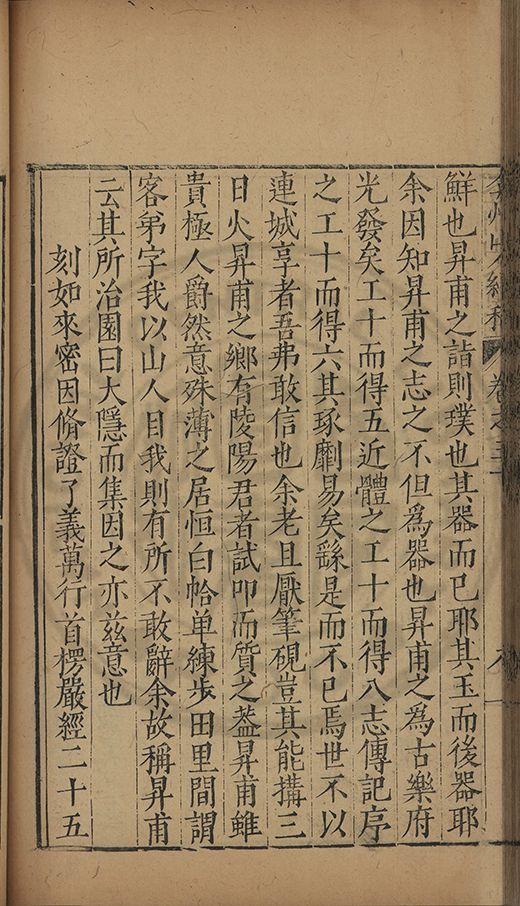 卷之五
鮮也昇甫之詣則璞也其器而已耶其玉而後器耶
余因知昇甫之志之不但為器也昇甫之為古樂府
光發矣工十而得五近體之工十而得八志傳記序
之工十而得六其琢劘易矣繇是而不已焉世不以
連城享者吾弗敢信也余老且厭筆硯豈其能搆三
日火昇甫之鄉有陵陽君者試叩而質之葢昇甫雖
貴極人爵然意殊薄之居恒白帢单練步田里間謂
客弟字我以山人目我則有所不敢辭余故稱昇甫
云其所治園曰大隱而集因之亦兹意也
刻如來密因脩證了義萬行首楞嚴經二十五